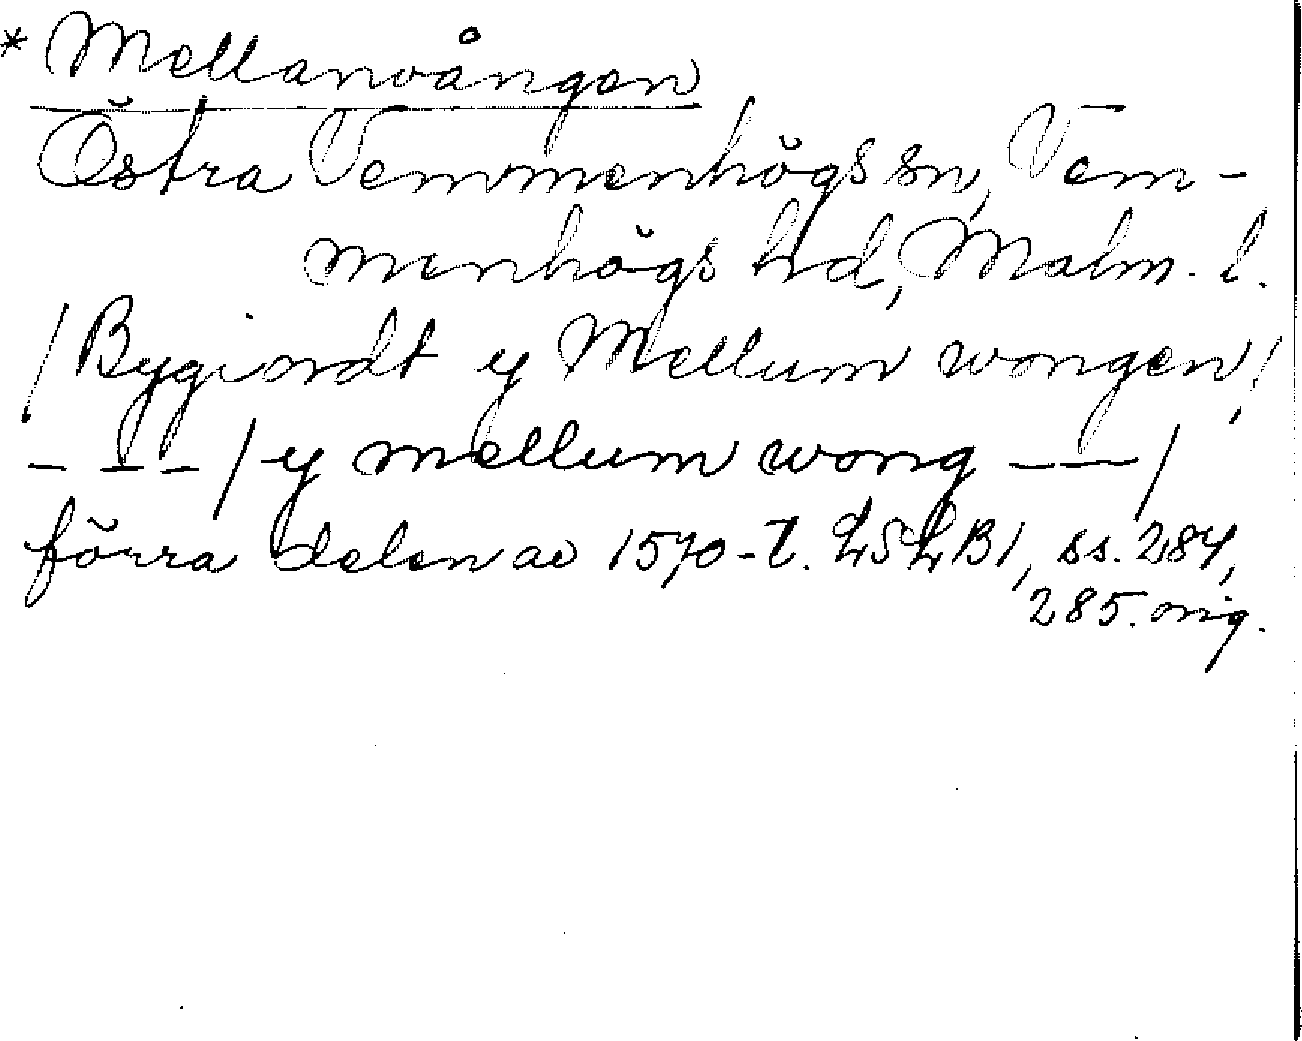 * Mellanvången
Östra Vemmenhögs sn, Vem-
menhögs hd, Malm. l.
/Bygiordt y Mellum wongen,/
- - - / y mellum wong - - /
förra delen av 1570-t. LSLB1, ss. 284,
285. orig.